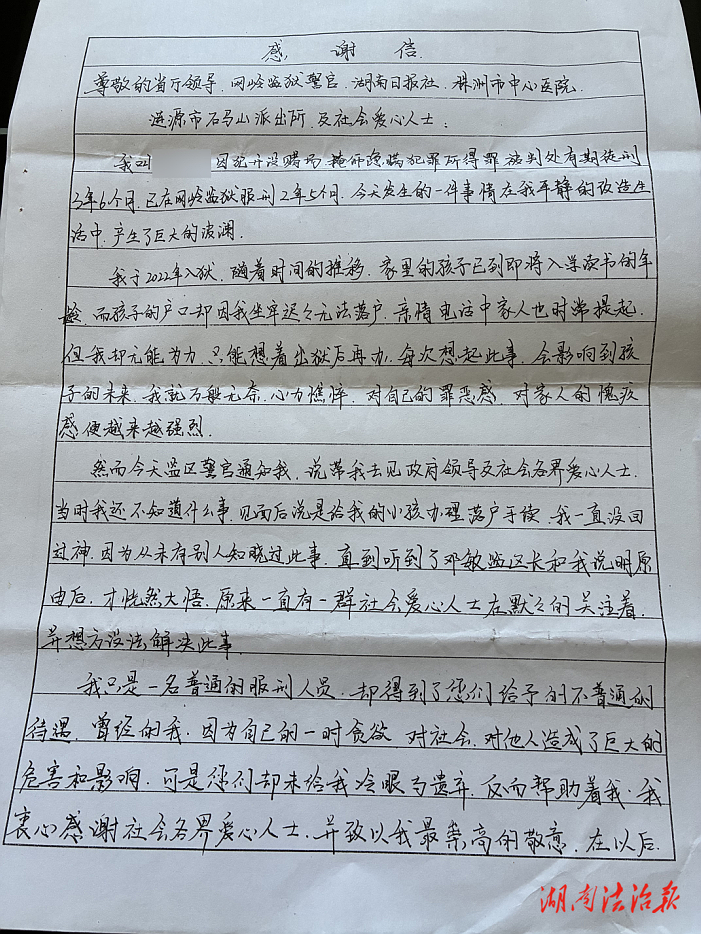 感谢信
尊敬的省厅领导、网岭监狱警官、湖南日报社、株洲市中心医院、
涟源市石马山派出所、及社会爱心人士:
我叫 因犯开设赌场、掩饰隐瞒犯罪所得罪被判处有期徒刑
3年6个月,已在网岭监狱服刑2年5个月,今天发生的一件事情在我平静的改造生
活中,产生了巨大的波澜。
我于2022年入狱,随着时间的推移,家里的孩子已到即将入学读书的年
龄,而孩子的户口却因我坐牢迟々无法落户,亲情电话中家人也时常提起,
但我却无能为力,只能想着出狱后再办,每次想起此事,会影响到孩
子的未来,我就万般无奈,心力憔悴,对自己的罪恶感,对家人的愧疚
感便越来越强烈。
然而今天监区警官通知我,说带我去见政府领导及社会各界爱心人士,
当时我还不知道什么事,见面后说是给我的小孩办理落户手续,我一直没回
过神,因为从未有别人知晓过此事,直到听到了邓敏监区长和我说明原
由后,才恍然大悟,原来一直有一群社会爱心人士在默々的关注着,
并想方设法解决此事。
我只是一名普通的服刑人员,却得到了您们给予的不普通的
待遇,曾经的我,因为自己的一时贪欲,对社会、对他人造成了巨大的
危害和影响,可是你们却未给我冷眼与遗弃,反而帮助着我,我
衷心感谢社会各界爱心人士,并致以我最崇高的敬意,在以后
湖南法治报